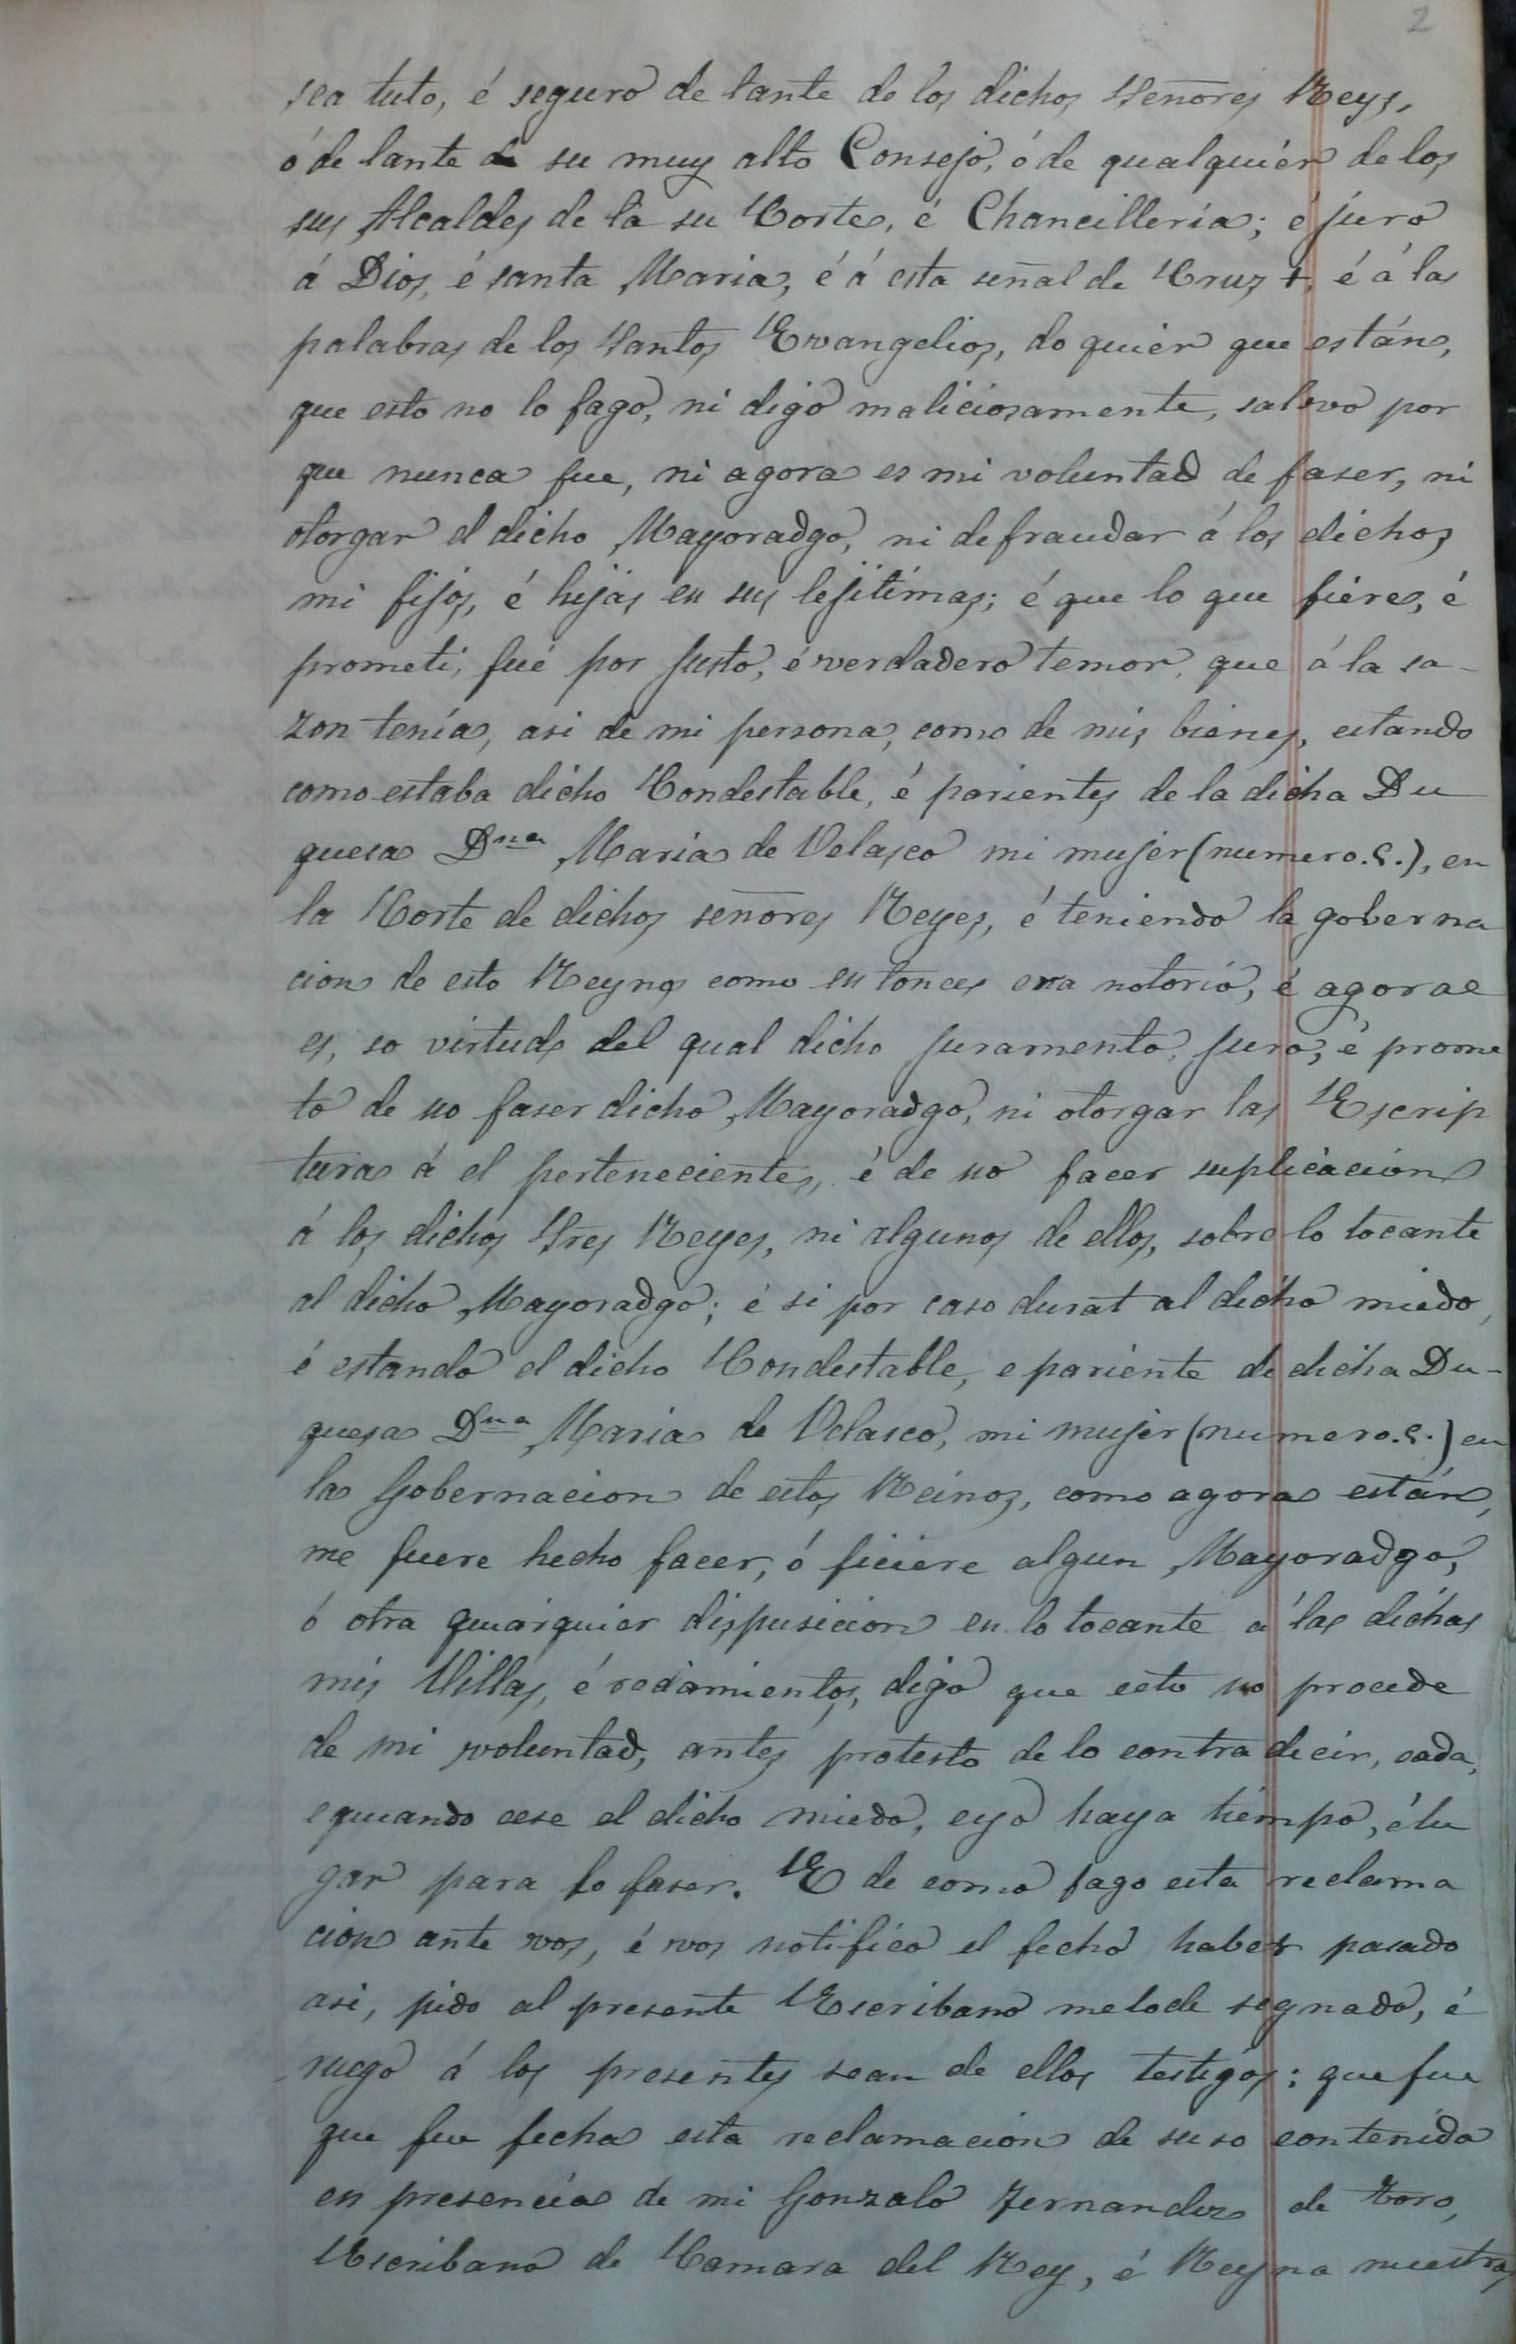 2
sea tuto, é seguro de lante de los dichos Señores Reys,
ó de lante de su muy alto Consejo, ó de qualquier de los
sus Alcaldes de la su Corte, é Chancilleria; é juro
á Dios, é santa Maria, é á esta señal de Cruz +, é á las
palabras de los Santos Evangelios, do quier que están,
que esto no lo fago, ni digo maliciosamente, salvo por
que nunca fue, ni agora es mi voluntad de faser, ni
otorgar el dicho Mayoradgo, ni defraudar á los dichos
mi fijos, é hijas en sus lejitimas; é que lo que fiere, é
prometi, fué por justo, é verdadero temor, que á la sa-
zon tenía, asi de mi persona, como de mis bienes, estando
como estaba dicho Condestable, é parientes de la dicha Du
quesa Dna Maria de Velasco mi mujer (numero.2.), en
la Corte de dichos señores Reyes, é teniendo la goberna
cion de esto Reynos como entonces era notorio, é agora
es, so virtud del qual dicho juramento, juro, é prome
to de no faser dicho Mayoradgo, ni otorgar las Escrip
turas á el pertenecientes, é de no facer suplicacion
á los dichos Sres Reyes, ni algunos de ellos, sobre lo tocante
al dicho Mayoradgo; é si por caso durat al dicho miedo,
é estando el dicho Condestable, e pariente de dicha Du-
quesa Dna Maria de Velasco, mi mujer (numero.2.) en
la Gobernacion de estos Reinos, como agora están,
me fuere hecho facer, ó ficiere algun Mayoradgo,
ó otra disposicion en lo tocante á las dichas
mis Villas, é digo que esto no procede
de mi voluntad, antes protesto de lo contra decir, cada,
e quando cese el dicho miedo, e yo haya tiempo, é lu
gar para lo faser. E de como fago esta reclama
cion ante vos, é vos notifico el fecho haber pasado
asi, pido al presente Escribano melode segnado, é
ruego á los presentes sean de ellos testigos; que fue
que fue fecha esta reclamacion de suso contenida
en presencia de mi Gonzalo Fernandez de Toro,
Escribano de Camara del Rey, é Reyna nuestros